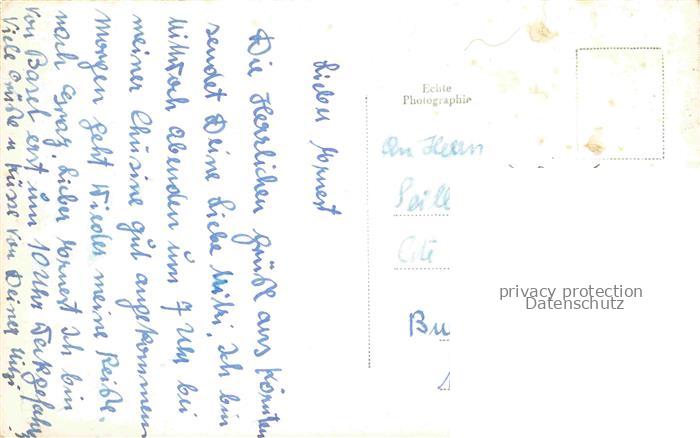 Lieber Ernest
Die Herzlichen Grüße aus Kärnten
sendet Deine Liebe Mitzi. Ich bin
Mittwoch abenden um 7 Uhr bei
meiner Chusine gut angekommen
morgen geht wieder meine Reiße.
nach Graz. Lieber Ernest Ich bin
von Basel erst um 10 Uhr
Viele Grüße u Küsse von Deiner Mizi.
Echte
Photographie
An Herrn
Seill
Cité
Bu
privacy protection
Datenschutz